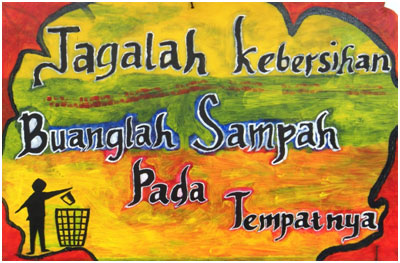 Jagalah kebersihan
Buanglah Sampah
Pada Tempatnya